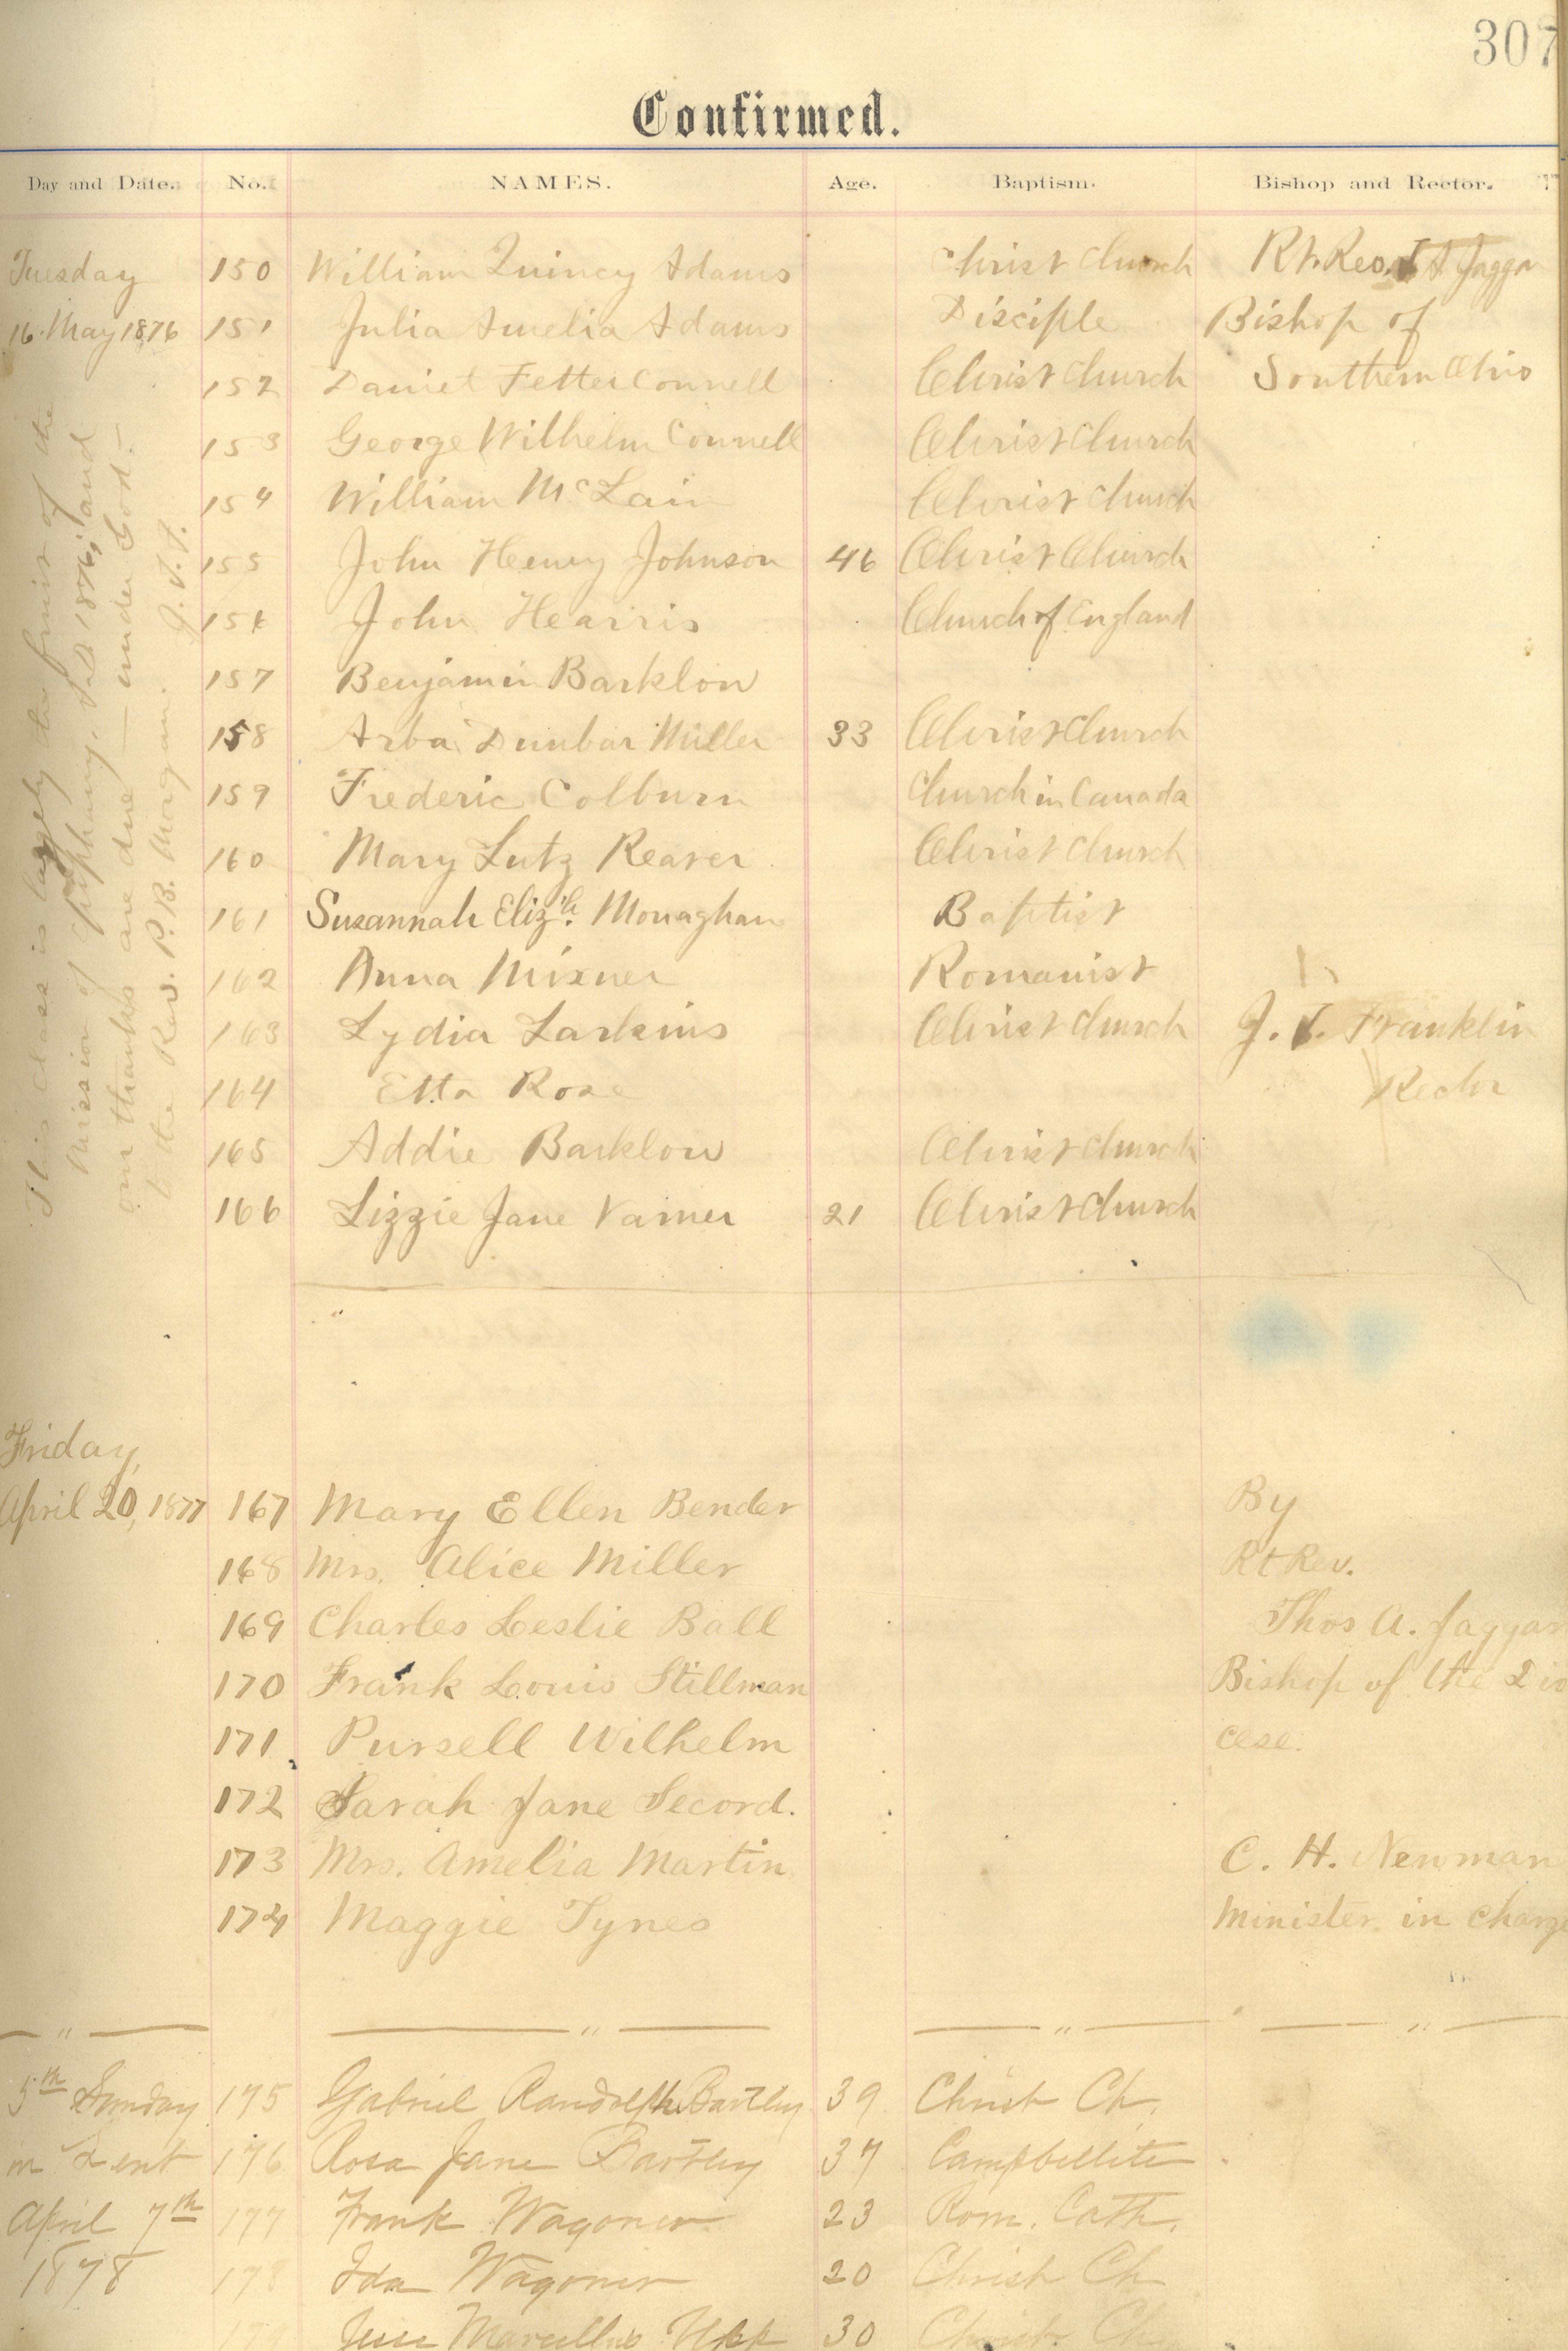 307
Confirmed.
Day and Date. No. NAMES. Age. Baptism. Bishop and Rector.
Tuesday 150 William Quincy Adams Christ Church Rt. Rev. T. A. Jaggar
16. May 1876 151 Julia Amelia Adams Disciple Bishop of
152 Daniel Fetter Connell Christ Church Southern Ohio
153 George Wilhelm Connell Christ Church
154 William McLain Christ Church
155 John Henry Johnson 46 Christ Church
156 John Hearris Church of England
157 Benjamin Barklow
158 Arba Dunbar Miller 33 Christ Church
159 Frederic Colburn Church in Canada
160 Mary Lutz Reaver Christ Church
161 Susannah Eliz'h. Monaghan Baptist
162 Anna Mixner Romanist
163 Lydia Larkins Christ Church J. T. Franklin
164 Etta Rose Rector
165 Addie Barklow Christ Church
166 Lizzie Jane Varner 21 Christ Church
This class is largely the fruit of the
Mission of Epiphany, 1876; and
our thanks are due — under God —
to the Rev. P. B. Morgan. J. T. F.
Friday,
April 20, 1877 167 Mary Ellen Bender By
168 Mrs. Alice Miller Rt Rev.
169 Charles Leslie Ball Thos A. Jaggar
170 Frank Louis Stillman Bishop of the Dio
171 Pursell Wilhelm cese.
172 Sarah Jane Secord.
173 Mrs. Amelia Martin C. H. Newman
174 Maggie Tynes Minister in charge
— " — — " — — " — — " —
5th Sunday 175 Gabriel Randolph Bartley 39 Christ Ch.
in Lent 176 Rosa Jane Bartley 37 Campbellite
April 7th 177 Frank Wagoner 23 Rom. Cath.
1878 178 Ida Wagoner 20 Christ Ch
179 Jesse Marcellus 30 Christ. Ch